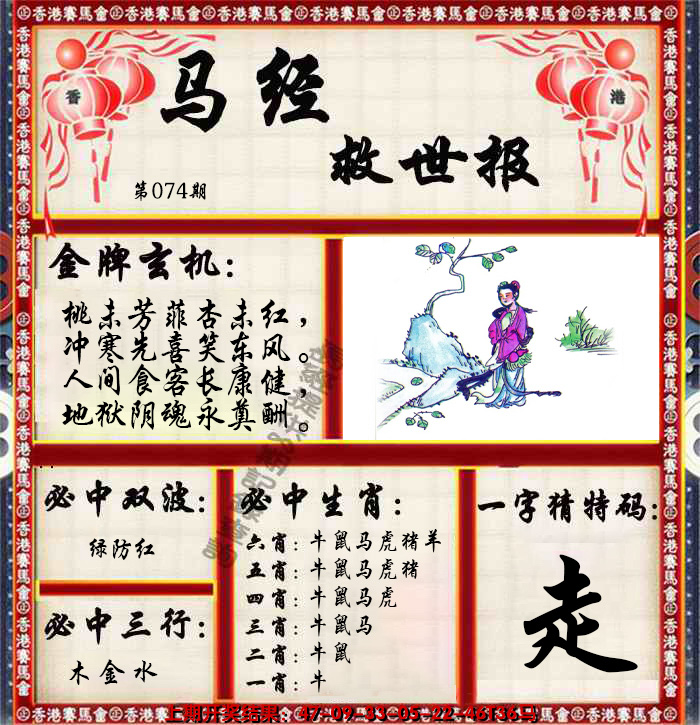 香港賽馬會
香 港
马经
救世报
第074期
金牌玄机:
桃未芳菲杏未红,
冲寒先喜笑东风。
人间食客长康健,
地狱阴魂永奠酬。
必中双波:
绿防红
必中三行:
木金水
必中生肖:
六肖:牛鼠马虎猪羊
五肖:牛鼠马虎猪
四肖:牛鼠马虎
三肖:牛鼠马
二肖:牛鼠
一肖:牛
一字猜特码:
走
上期开奖结果:47-09-33-05-22-46T36马